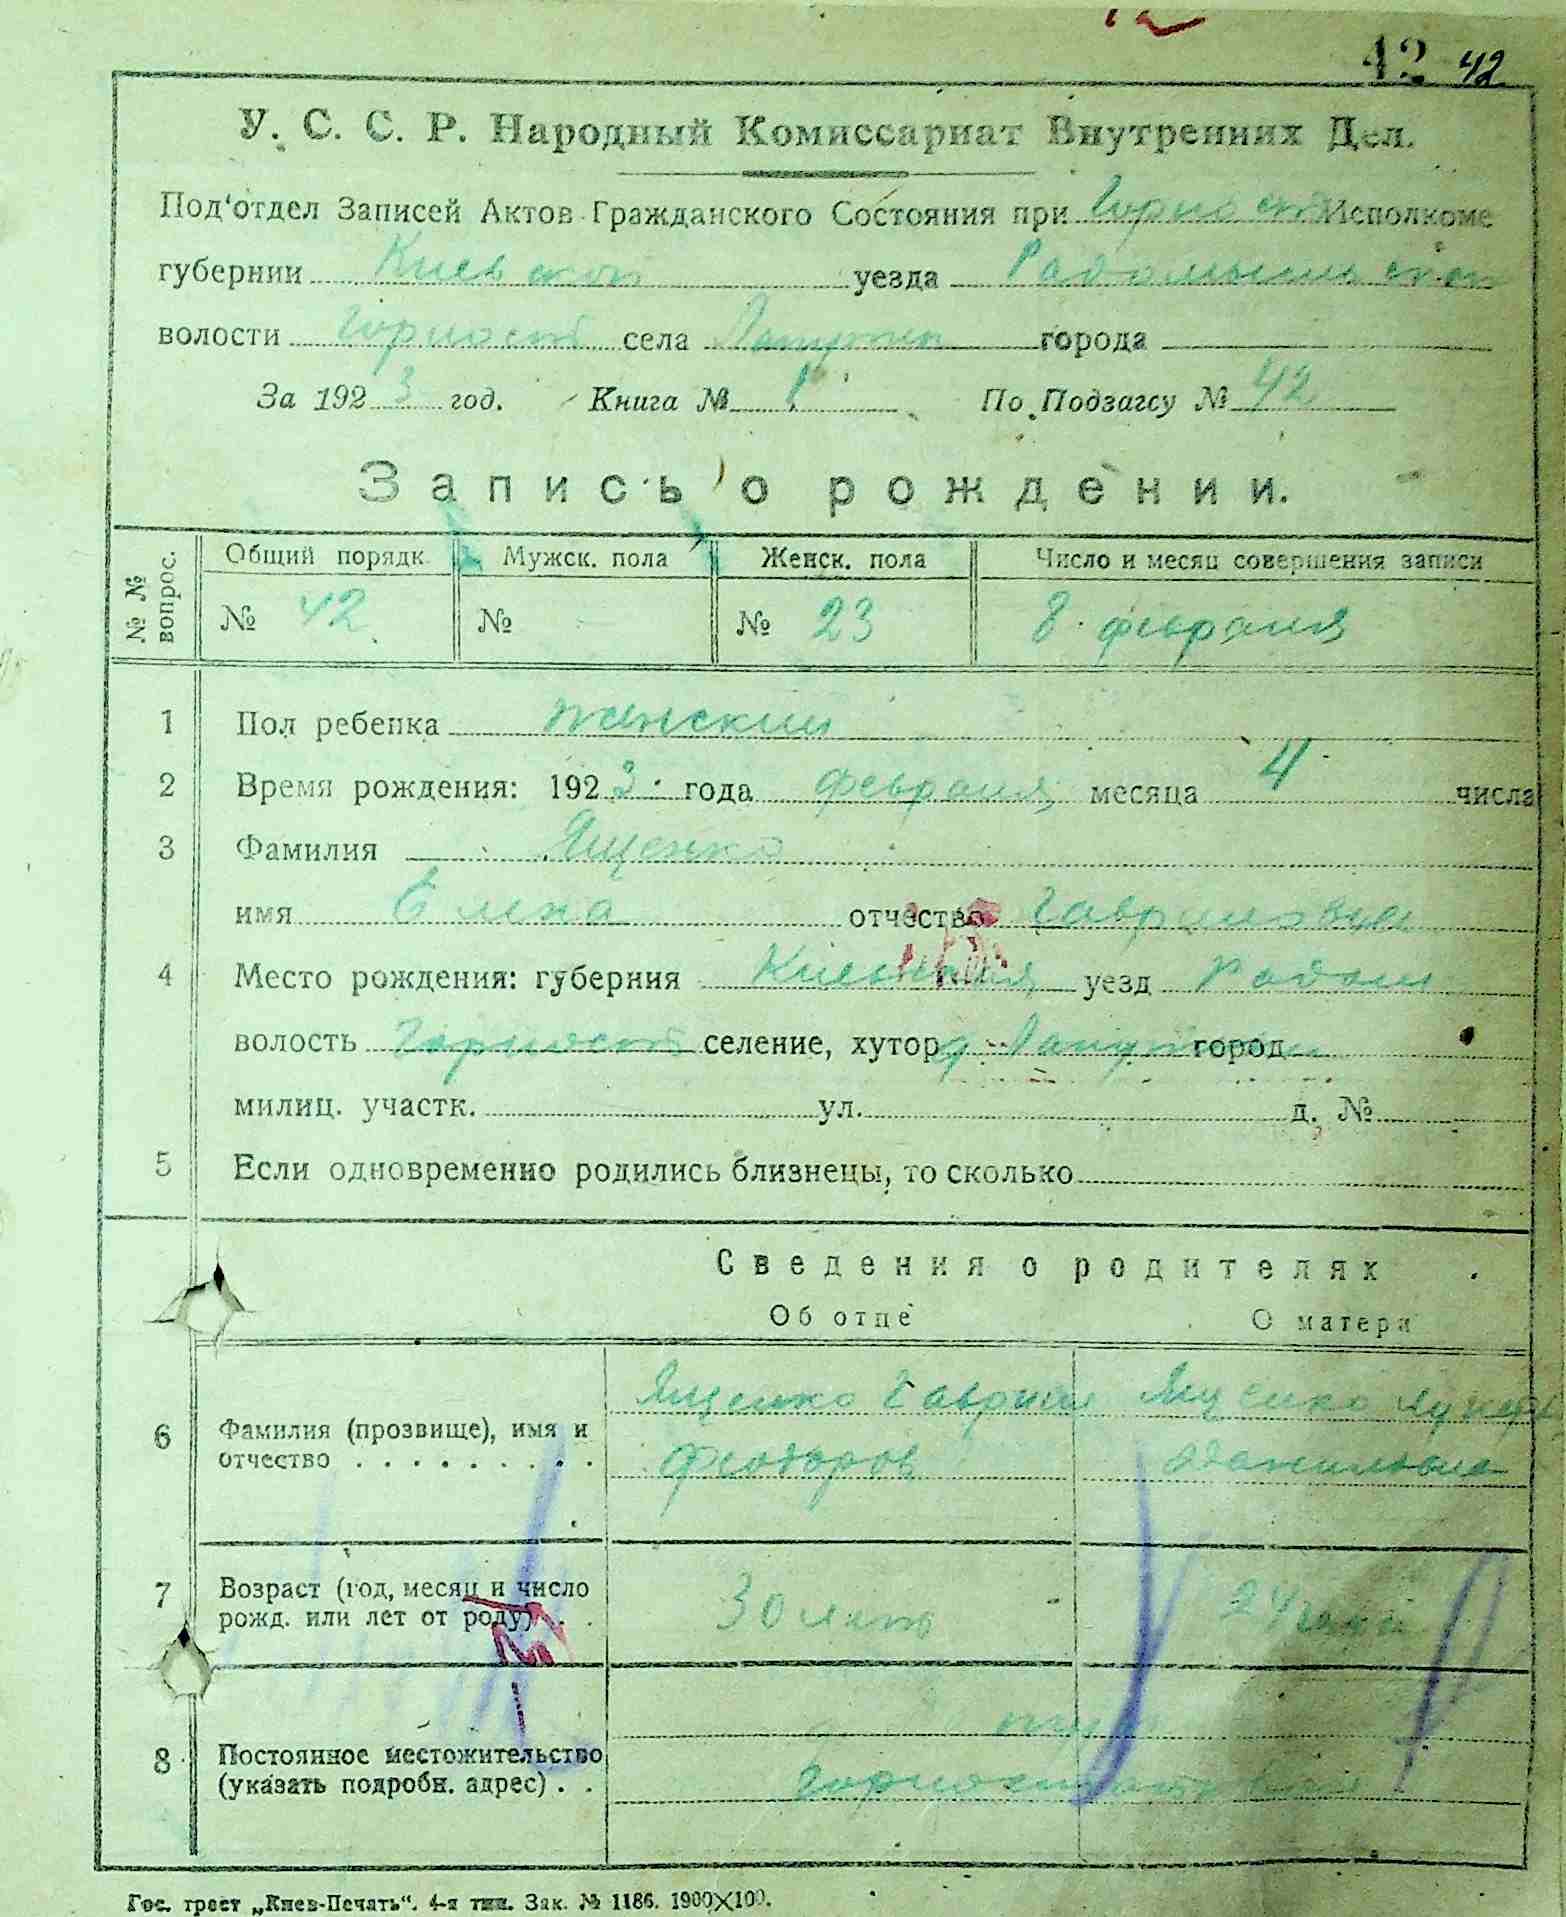 42 42
У. С. С. Р. Народный Комиссариат Внутренних Дел.
Под'отдел Записей Актов Гражданского Состояния при Горност Исполкоме
губернии Киевской уезда Радомысльской
волости Горност села города
За 1923 год. Книга № 1 По Подзагсу № 42
Запись о рождении.
№ № вопрос. Общий порядк. Мужск. пола Женск. пола Число и месяц совершения записи
№ 42 № № 23 8 февраля
1 Пол ребенка женский
2 Время рождения: 1923 года февраля месяца 4 числа
3 Фамилия Ященко
имя Елена отчество Гавриловна
4 Место рождения: губерния Киевская уезд Радом
волость Горност селение, хутор город
милиц. участк. ул. д. №
5 Если одновременно родились близнецы, то сколько
Сведения о родителях
Об отце О матери
6 Фамилия (прозвище), имя и Ященко Гавриил Ященко
отчество . . . . . . . . . Феодоров Даниловна
7 Возраст (год, месяц и число
рожд. или лет от роду) . . 30 лет 24
8 Постоянное местожительство
(указать подробн. адрес) . .
Гос. трест „Киев-Печать“. 4-я тип. Зак. № 1186. 1900×100.